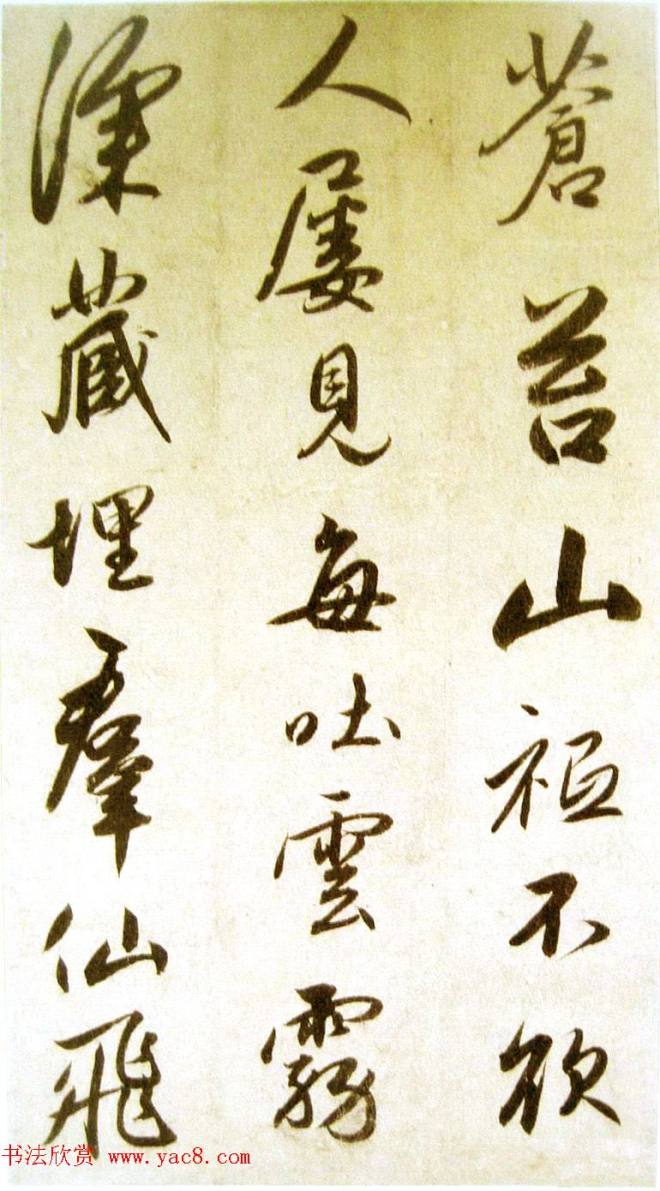 蒼苔山祖不欲
人屢見每吐雲霧
深藏埋羣仙飛
书法欣赏 www.yac8.com